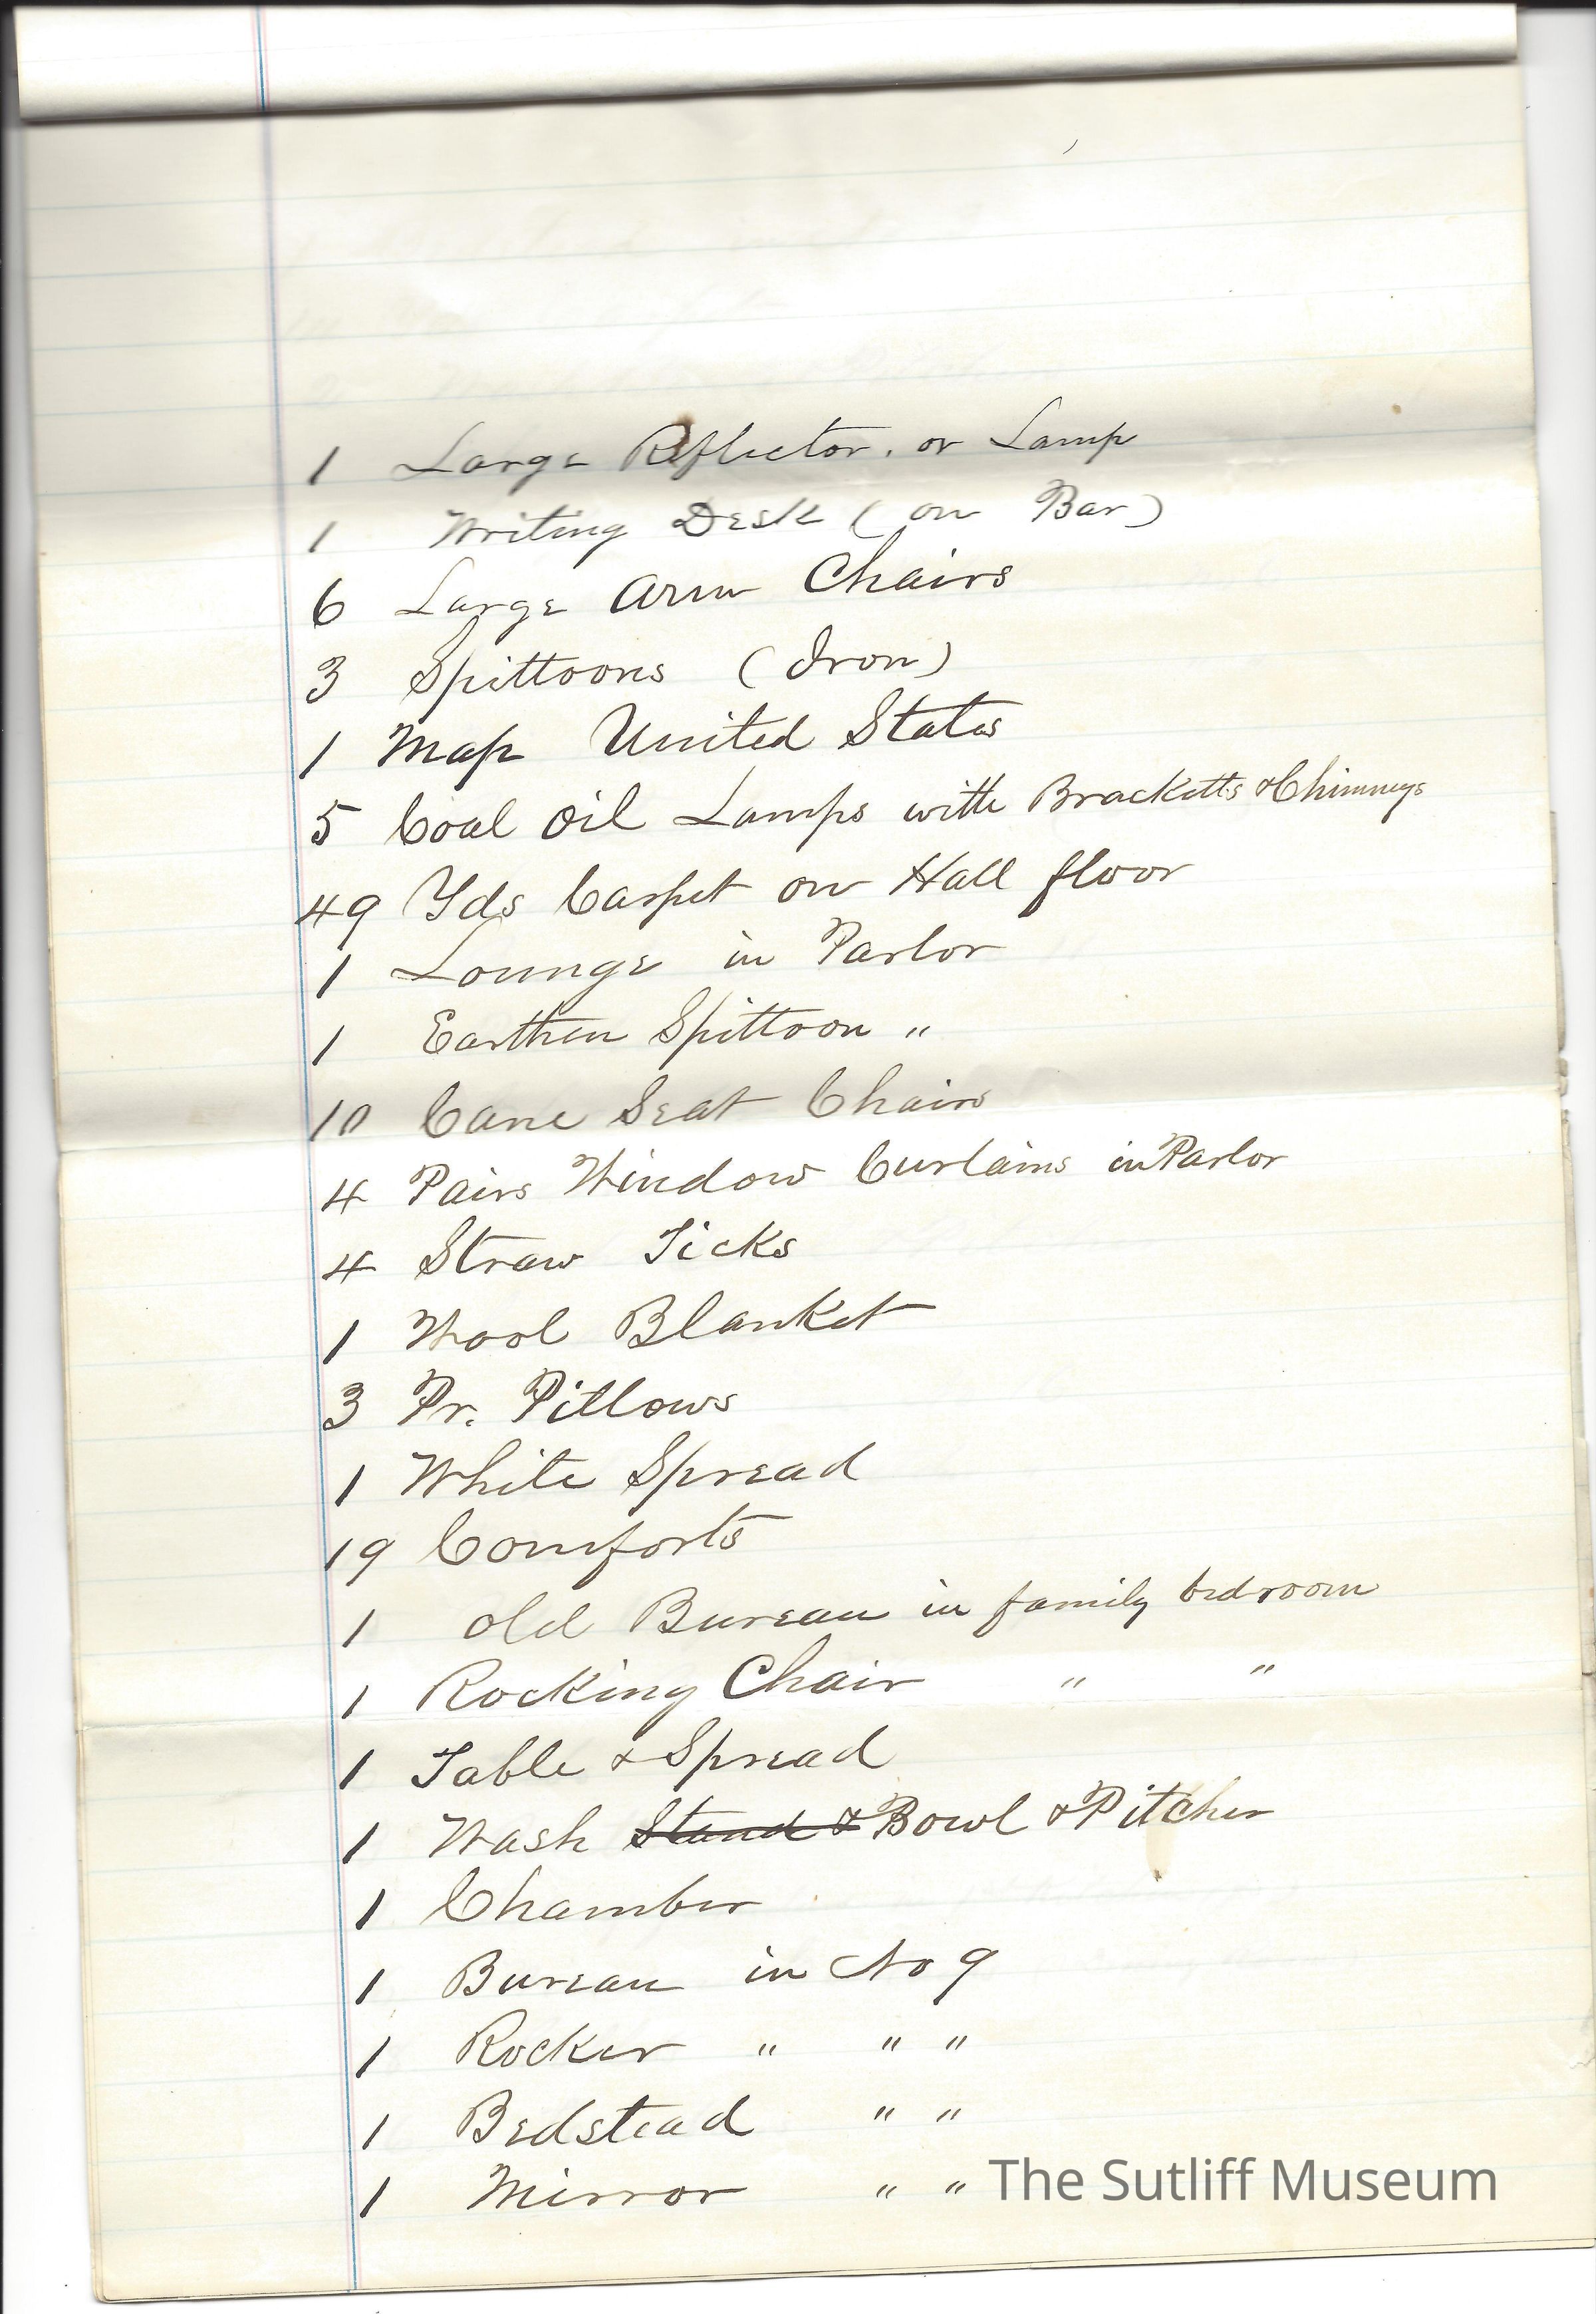 1 Large Reflector. or Lamp
1 Writing Desk (on Bar)
6 Large Arm Chairs
3 Spittoons (Iron)
1 Map United States
5 Coal Oil Lamps with Bracketts & Chimneys
49 Yds Carpet on Hall floor
1 Lounge in Parlor
1 Earthen Spittoon "
10 Cane Seat Chairs
4 Pairs Window Curtains in Parlor
4 Straw Ticks
1 Wool Blanket
3 Pr. Pillows
1 White Spread
19 Comforts
1 Old Bureau in family bedroom
1 Rocking Chair " "
1 Table & Spread
1 Wash Stand & Bowl & Pitcher
1 Chamber
1 Bureau in No 9
1 Rocker " " "
1 Bedstead " "
1 Mirror " "
The Sutliff Museum